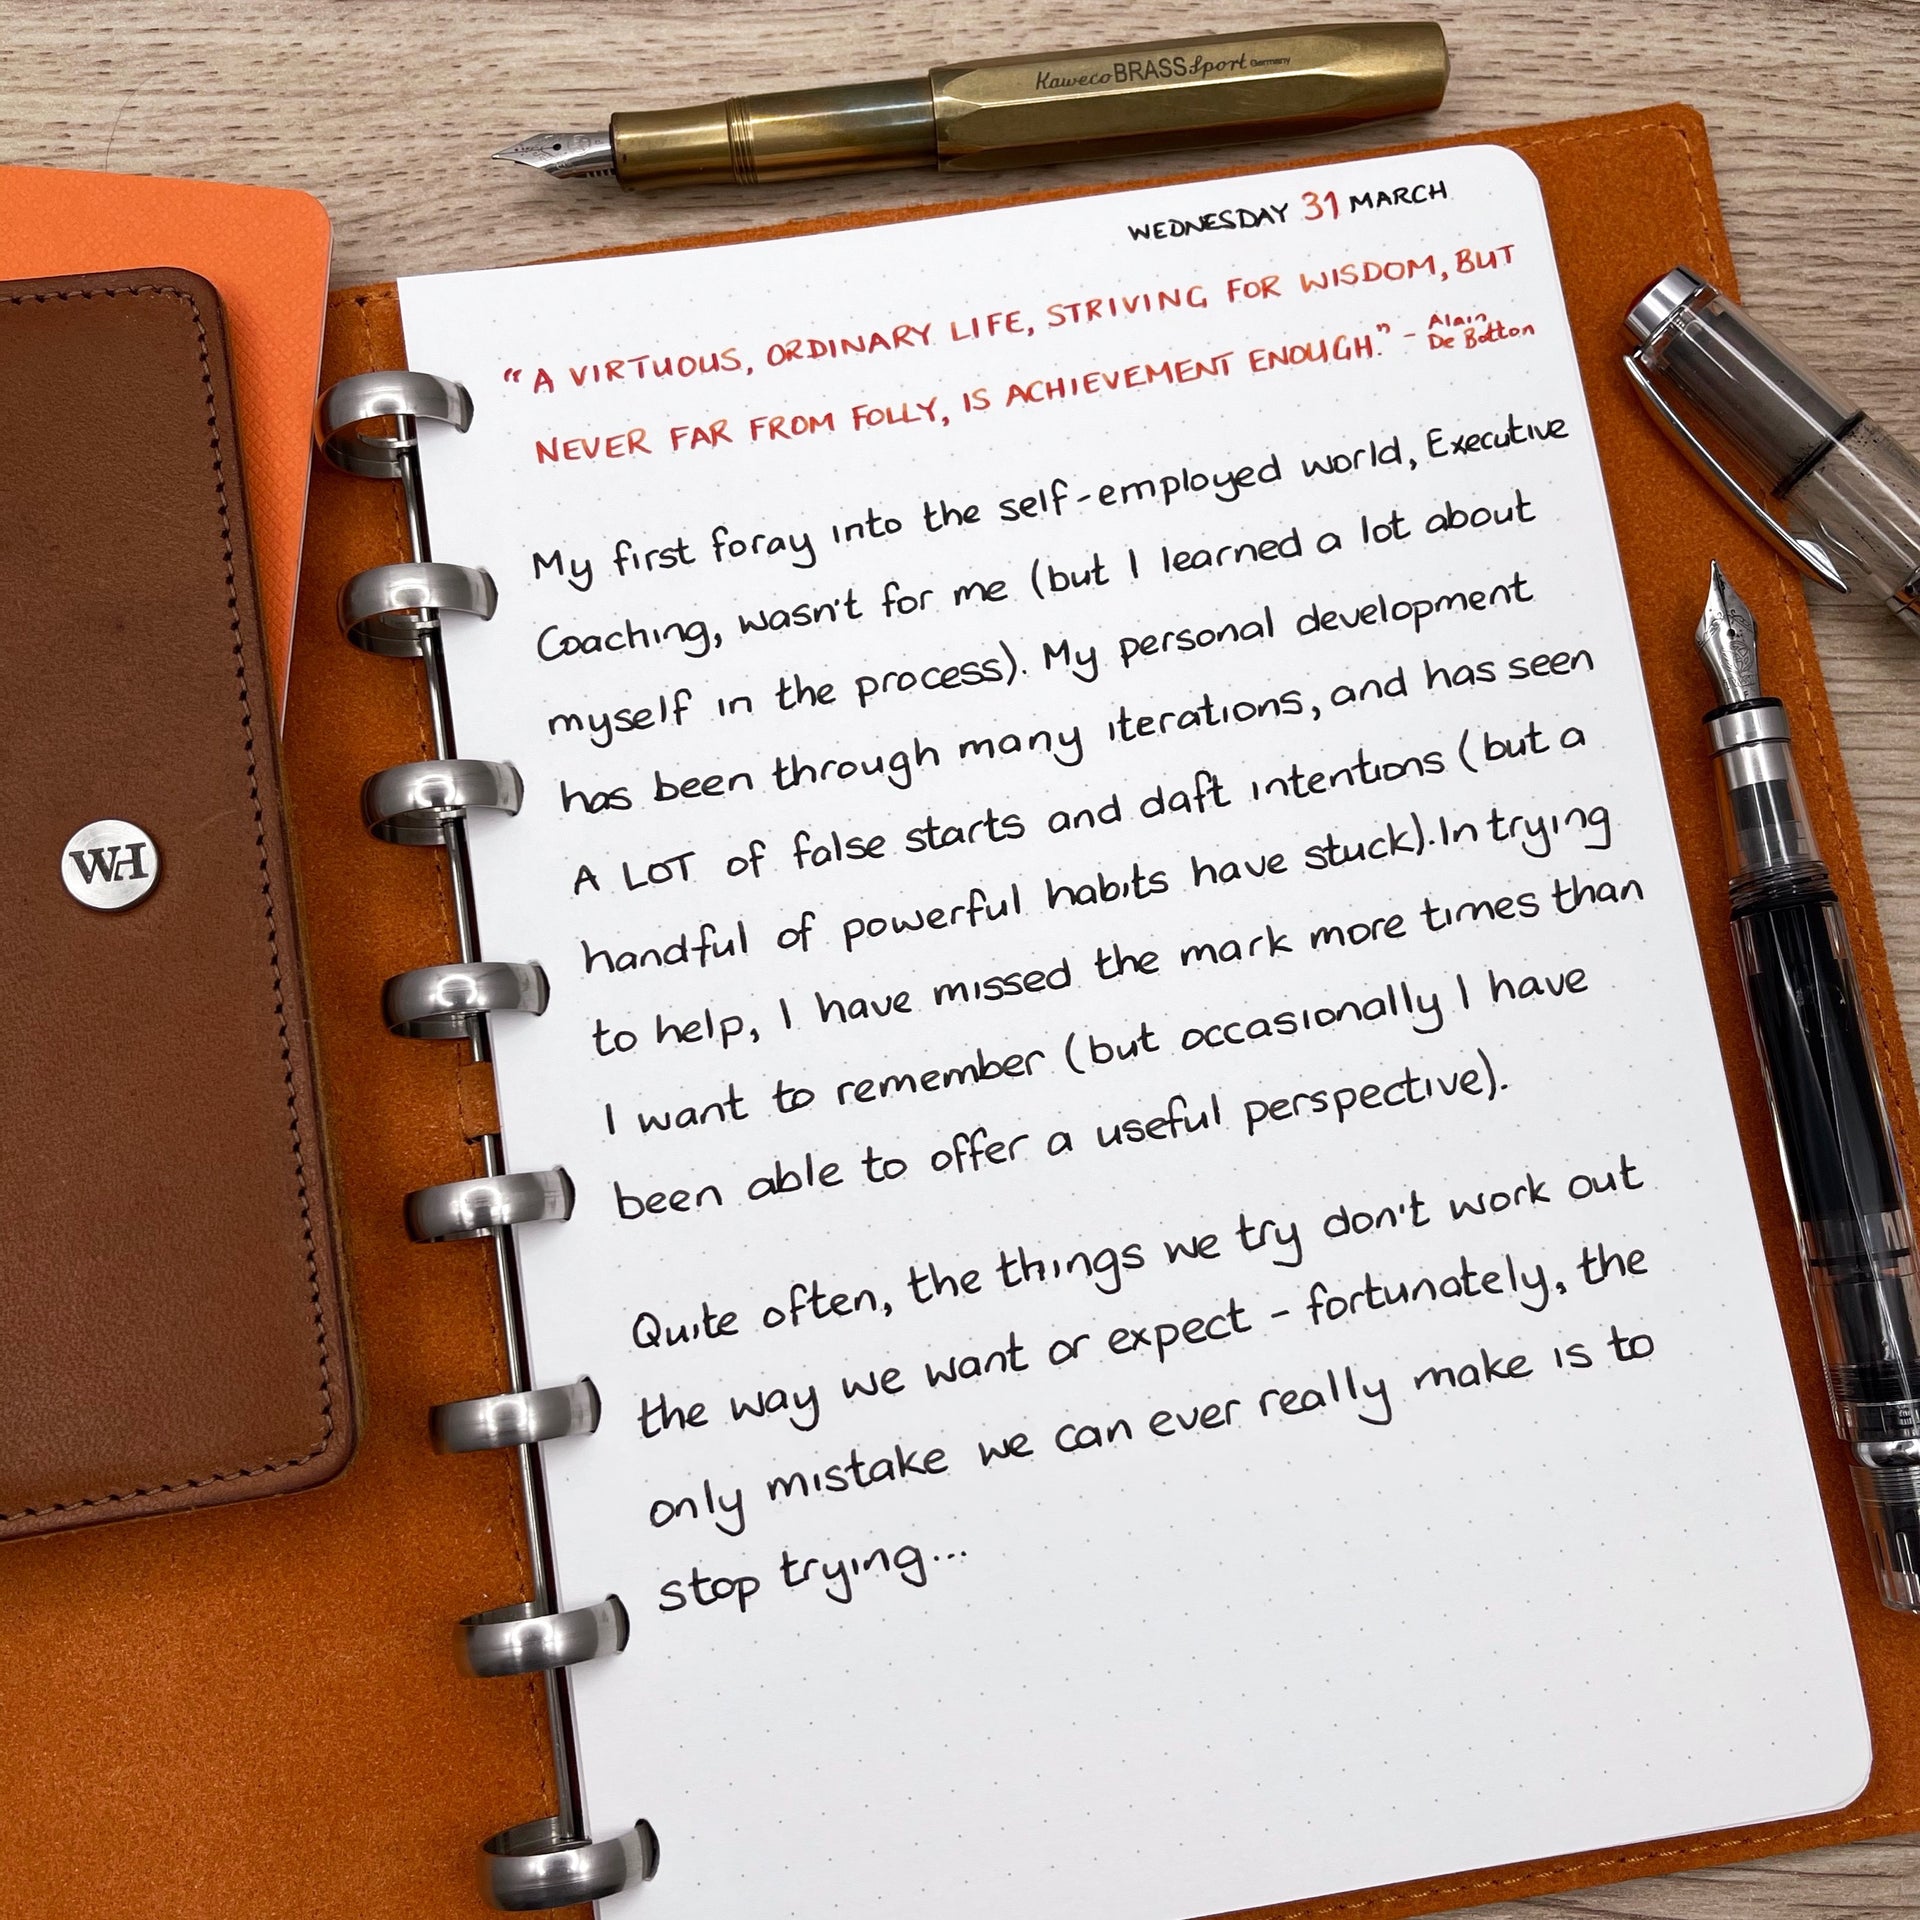 Kaweco BRASS Sport Germany
WEDNESDAY 31 MARCH
"A VIRTUOUS, ORDINARY LIFE, STRIVING FOR WISDOM, BUT
NEVER FAR FROM FOLLY, IS ACHIEVEMENT ENOUGH." - Alain De Botton
My first foray into the self-employed world, Executive
Coaching, wasn't for me (but I learned a lot about
myself in the process). My personal development
has been through many iterations, and has seen
A LOT of false starts and daft intentions (but a
handful of powerful habits have stuck). In trying
to help, I have missed the mark more times than
I want to remember (but occasionally I have
been able to offer a useful perspective).
Quite often, the things we try don't work out
the way we want or expect - fortunately, the
only mistake we can ever really make is to
stop trying...
WH